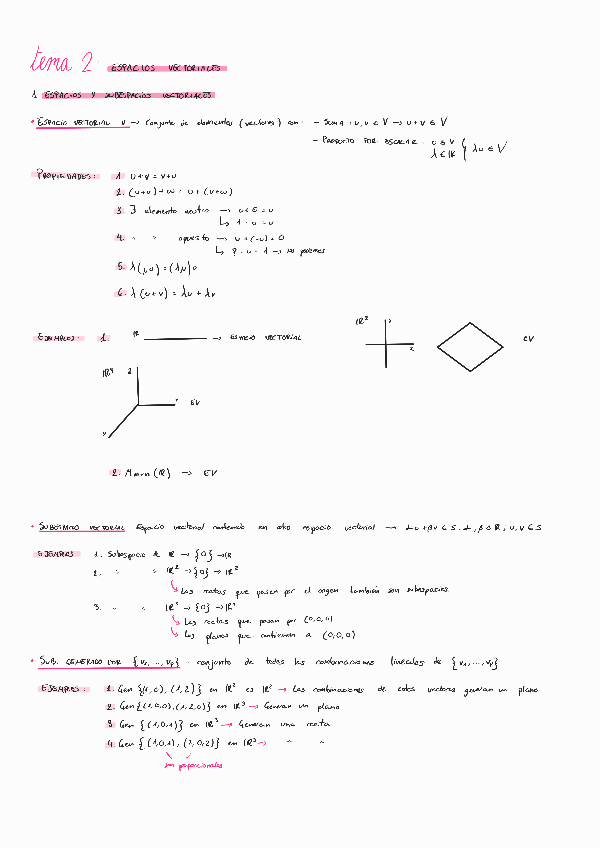 tema 2. ESPACIOS VECTORIALES
1. ESPACIOS Y SUBESPACIOS VECTORIALES
• ESPACIO VECTORIAL V → Conjunto de elementos (vectores) con: - SUMA: u, v ∈ V → u + v ∈ V
- PRODUCTO POR ESCALAR: u ∈ V
λ ∈ IK } λu ∈ V
PROPIEDADES: 1. u + v = v + u
2. (u + v) + w = u + (v + w)
3. ∃ elemento neutro → u + 0 = u
↳ 1 · u = u
4. " " opuesto → u + (-u) = 0
↳ ? · u = 1 → no podemos
5. λ(μu) = (λμ)u
6. λ(u + v) = λu + λv
EJEMPLOS: 1. IR → ESPACIO VECTORIAL
IR²
EV
EV
2. Mmxn (IR) → EV
• SUBESPACIO VECTORIAL: Espacio vectorial contenido en otro espacio vectorial → αu + βv ∈ S, α, β ∈ IR; u, v ∈ S
EJEMPLOS: 1. Subespacio de IR → {0} → IR
2. " " IR² → {0} → IR²
↳ Las rectas que pasan por el origen también son subespacios.
3. " " IR³ → {0} → IR³
↳ Las rectas que pasan por (0,0,0)
↳ Los planos que contienen a (0,0,0)
• SUB. GENERADO POR {v1, ..., vp}: conjunto de todas las combinaciones lineales de {v1, ..., vp}
EJEMPLOS: 1. Gen {(1,0), (1,2)} en IR² es IR² → Las combinaciones de estos vectores generan un plano
2. Gen {(1,0,0), (1,2,0)} en IR³ → Generan un plano
3. Gen {(1,0,1)} en IR³ → Generan una recta
4. Gen {(1,0,1), (2,0,2)} en IR³ → " "
son proporcionales